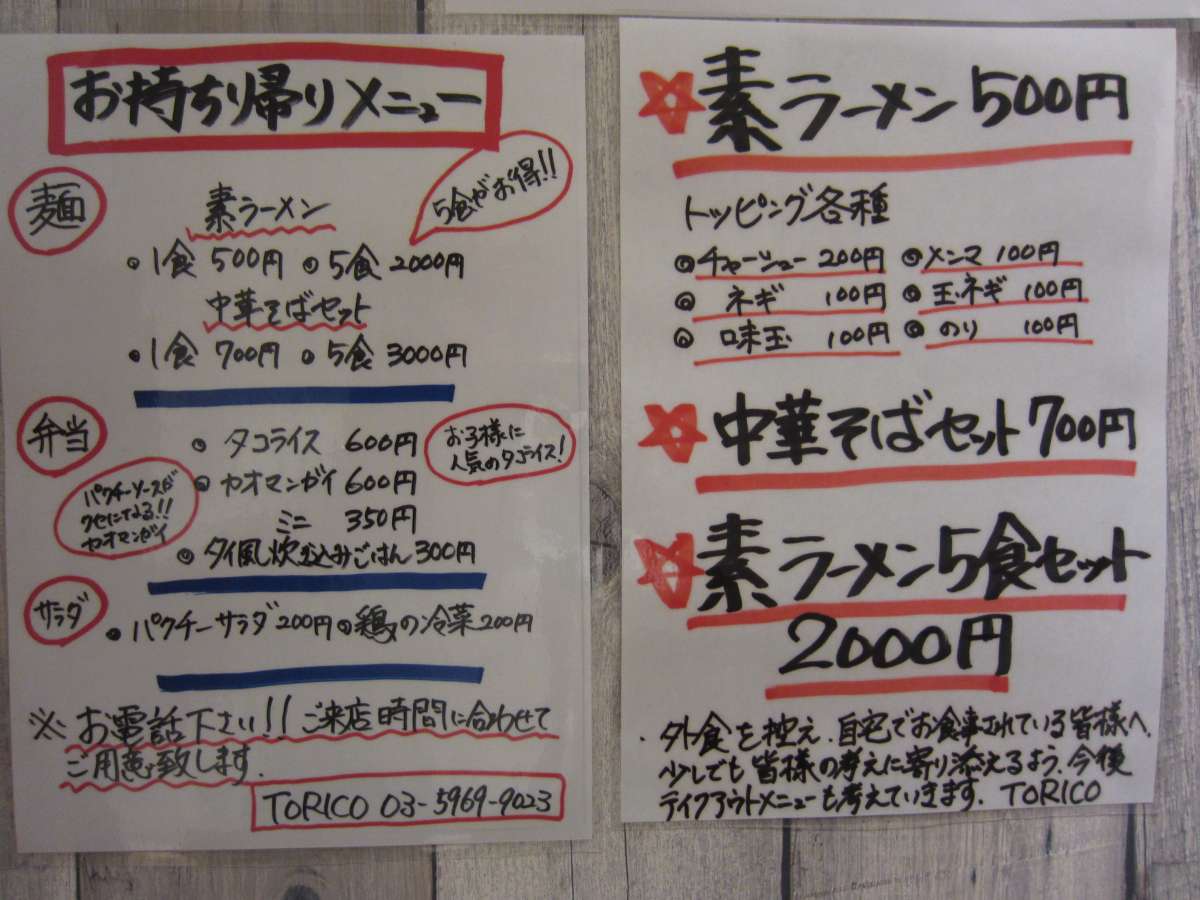 お持ち帰りメニュー
麺
素ラーメン
5食がお得!!
●1食 500円 ●5食 2000円
中華そばセット
●1食 700円 ●5食 3000円
弁当
●タコライス 600円
お子様に
人気のタコライス!
●カオマンガイ 600円
ミニ 350円
パクチーソースが
クセになる!!
カオマンガイ
●タイ風炊き込みごはん 300円
サラダ
●パクチーサラダ 200円 ●鶏の冷菜 200円
※お電話下さい!! ご来店時間に合わせて
ご用意致します.
TORICO 03-5969-9023
☆素ラーメン 500円
トッピング各種
◎チャーシュー 200円 ◎メンマ 100円
◎ネギ 100円 ◎玉ネギ 100円
◎味玉 100円 ◎のり 100円
☆中華そばセット 700円
☆素ラーメン5食セット
2000円
・外食を控え、自宅でお食事されている皆様へ
少しでも皆様の考えに寄り添えるよう、今後
テイクアウトメニューも考えていきます. TORICO